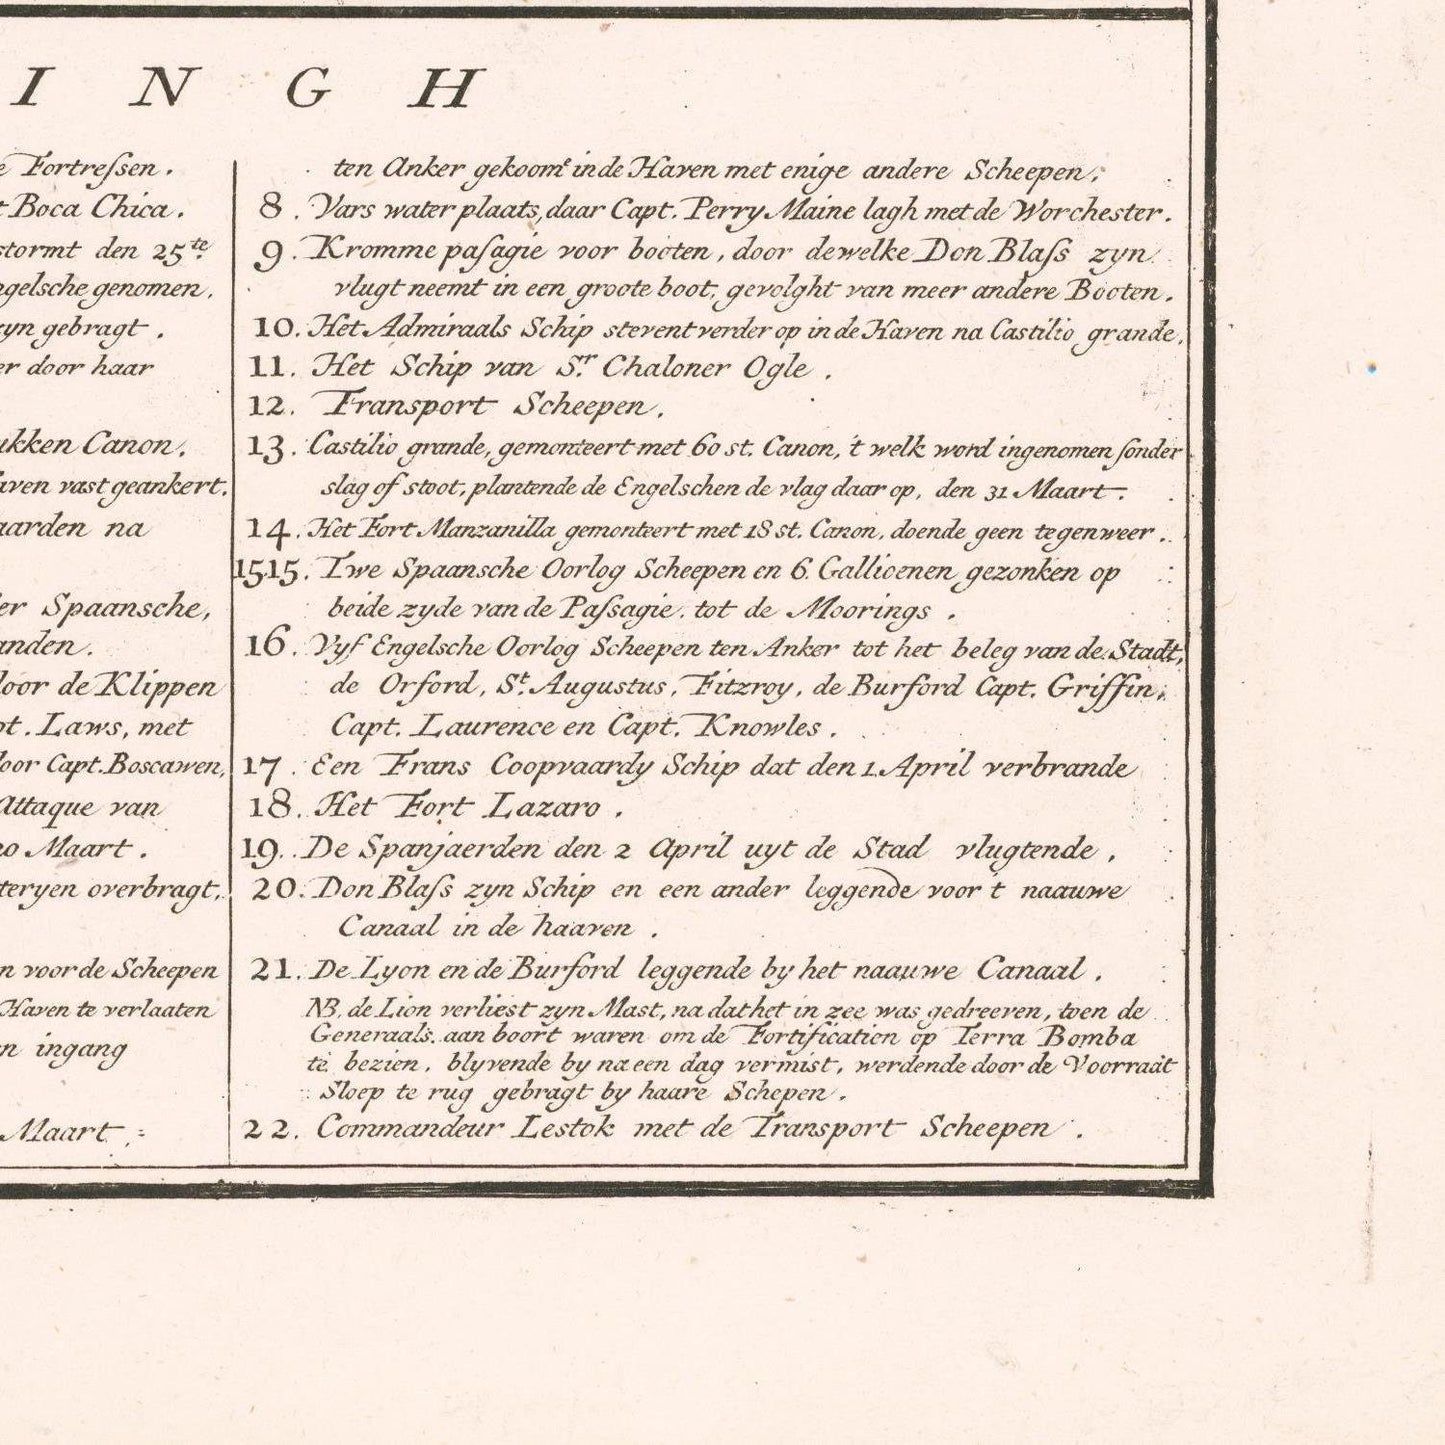 I N G H
Fortreſsen.
Boca Chica.
stormt den 25.te
ngelsche genomen.
zyn gebragt.
er door haar
ukken Canon.
aven vast geankert.
aarden na
er Spaansche,
anden.
door de Klippen
pt. Laws, met
door Capt. Boscawen,
Attaque van
20 Maart.
teryen overbragt.
n voor de Scheepen
Haven te verlaaten
n ingang
Maart
ten Anker gekoomt in de Haven met enige andere Scheepen.
8. Vars water plaats, daar Capt. Perry Maine lagh met de Worchester.
9. Kromme paſsagie voor booten, door dewelke Don Blaſs zyn
vlugt neemt in een groote boot, gevolght van meer andere Booten.
10. Het Admiraals Schip stevent verder op in de Haven na Castilio grande.
11. Het Schip van S.r Chaloner Ogle.
12. Transport Scheepen.
13. Castilio grande, gemonteert met 60 st. Canon, 't welk word ingenomen ſonder
slag of stoot, plantende de Engelschen de vlag daar op, den 31 Maart.
14. Het Fort Manzanilla gemonteert met 18 st. Canon, doende geen tegenweer.
15.15. Twe Spaansche Oorlog Scheepen en 6. Gallioenen gezonken op
beide zyde van de Paſsagie tot de Moorings.
16. Vyf Engelsche Oorlog Scheepen ten Anker tot het beleg van de Stadt,
de Orford, S.t Augustus, Fitzroy, de Burford Capt. Griffin,
Capt. Laurence en Capt. Knowles.
17. Een Frans Coopvaardy Schip dat den 1. April verbrande
18. Het Fort Lazaro.
19. De Spanjaerden den 2 April uyt de Stad vlugtende,
20. Don Blaſs zyn Schip en een ander leggende voor 't naauwe
Canaal in de haaven.
21. De Lyon en de Burford leggende by het naauwe Canaal.
NB. de Lion verliest zyn Mast, na dat het in zee was gedreeven, toen de
Generaals aan boort waren om de Fortificatien op Terra Bomba
te bezien, blyvende by na een dag vermist, werdende door de Voorraat
Sloep te rug gebragt by haare Schepen.
22. Commandeur Lestok met de Transport Scheepen.